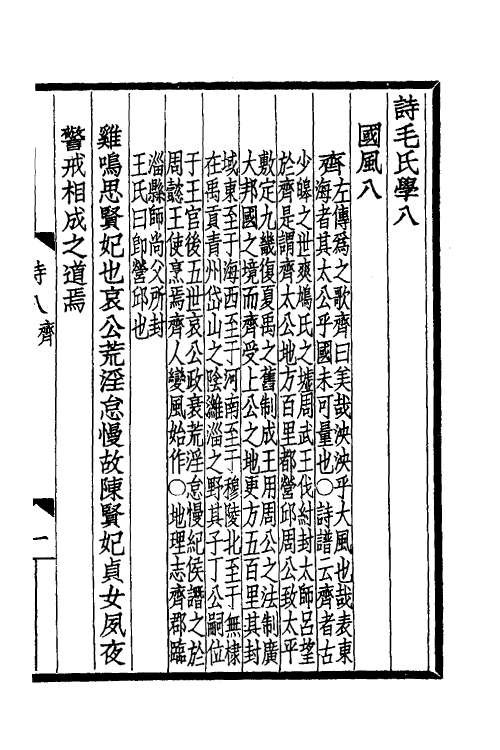 詩毛氏學八
國風八
齊
左傳爲之歌齊曰美哉泱泱乎大風也哉表東
海者其太公乎國未可量也○詩譜云齊者古
少皞之世爽鳩氏之墟周武王伐紂封太師呂望
於齊是謂齊太公地方百里都營邱周公致太平
敷定九畿復夏禹之舊制成王用周公之法制廣
大邦國之境而齊受上公之地更方五百里其封
域東至于海西至于河南至于穆陵北至于無棣
在禹貢青州岱山之陰濰淄之野其子丁公嗣位
于王官後五世哀公政衰荒淫怠慢紀侯譖之於
周懿王使烹焉齊人變風始作○地理志齊郡臨
淄縣師尚父所封
王氏曰卽營邱也
雞鳴思賢妃也哀公荒淫怠慢故陳賢妃貞女夙夜
警戒相成之道焉
詩八齊
一